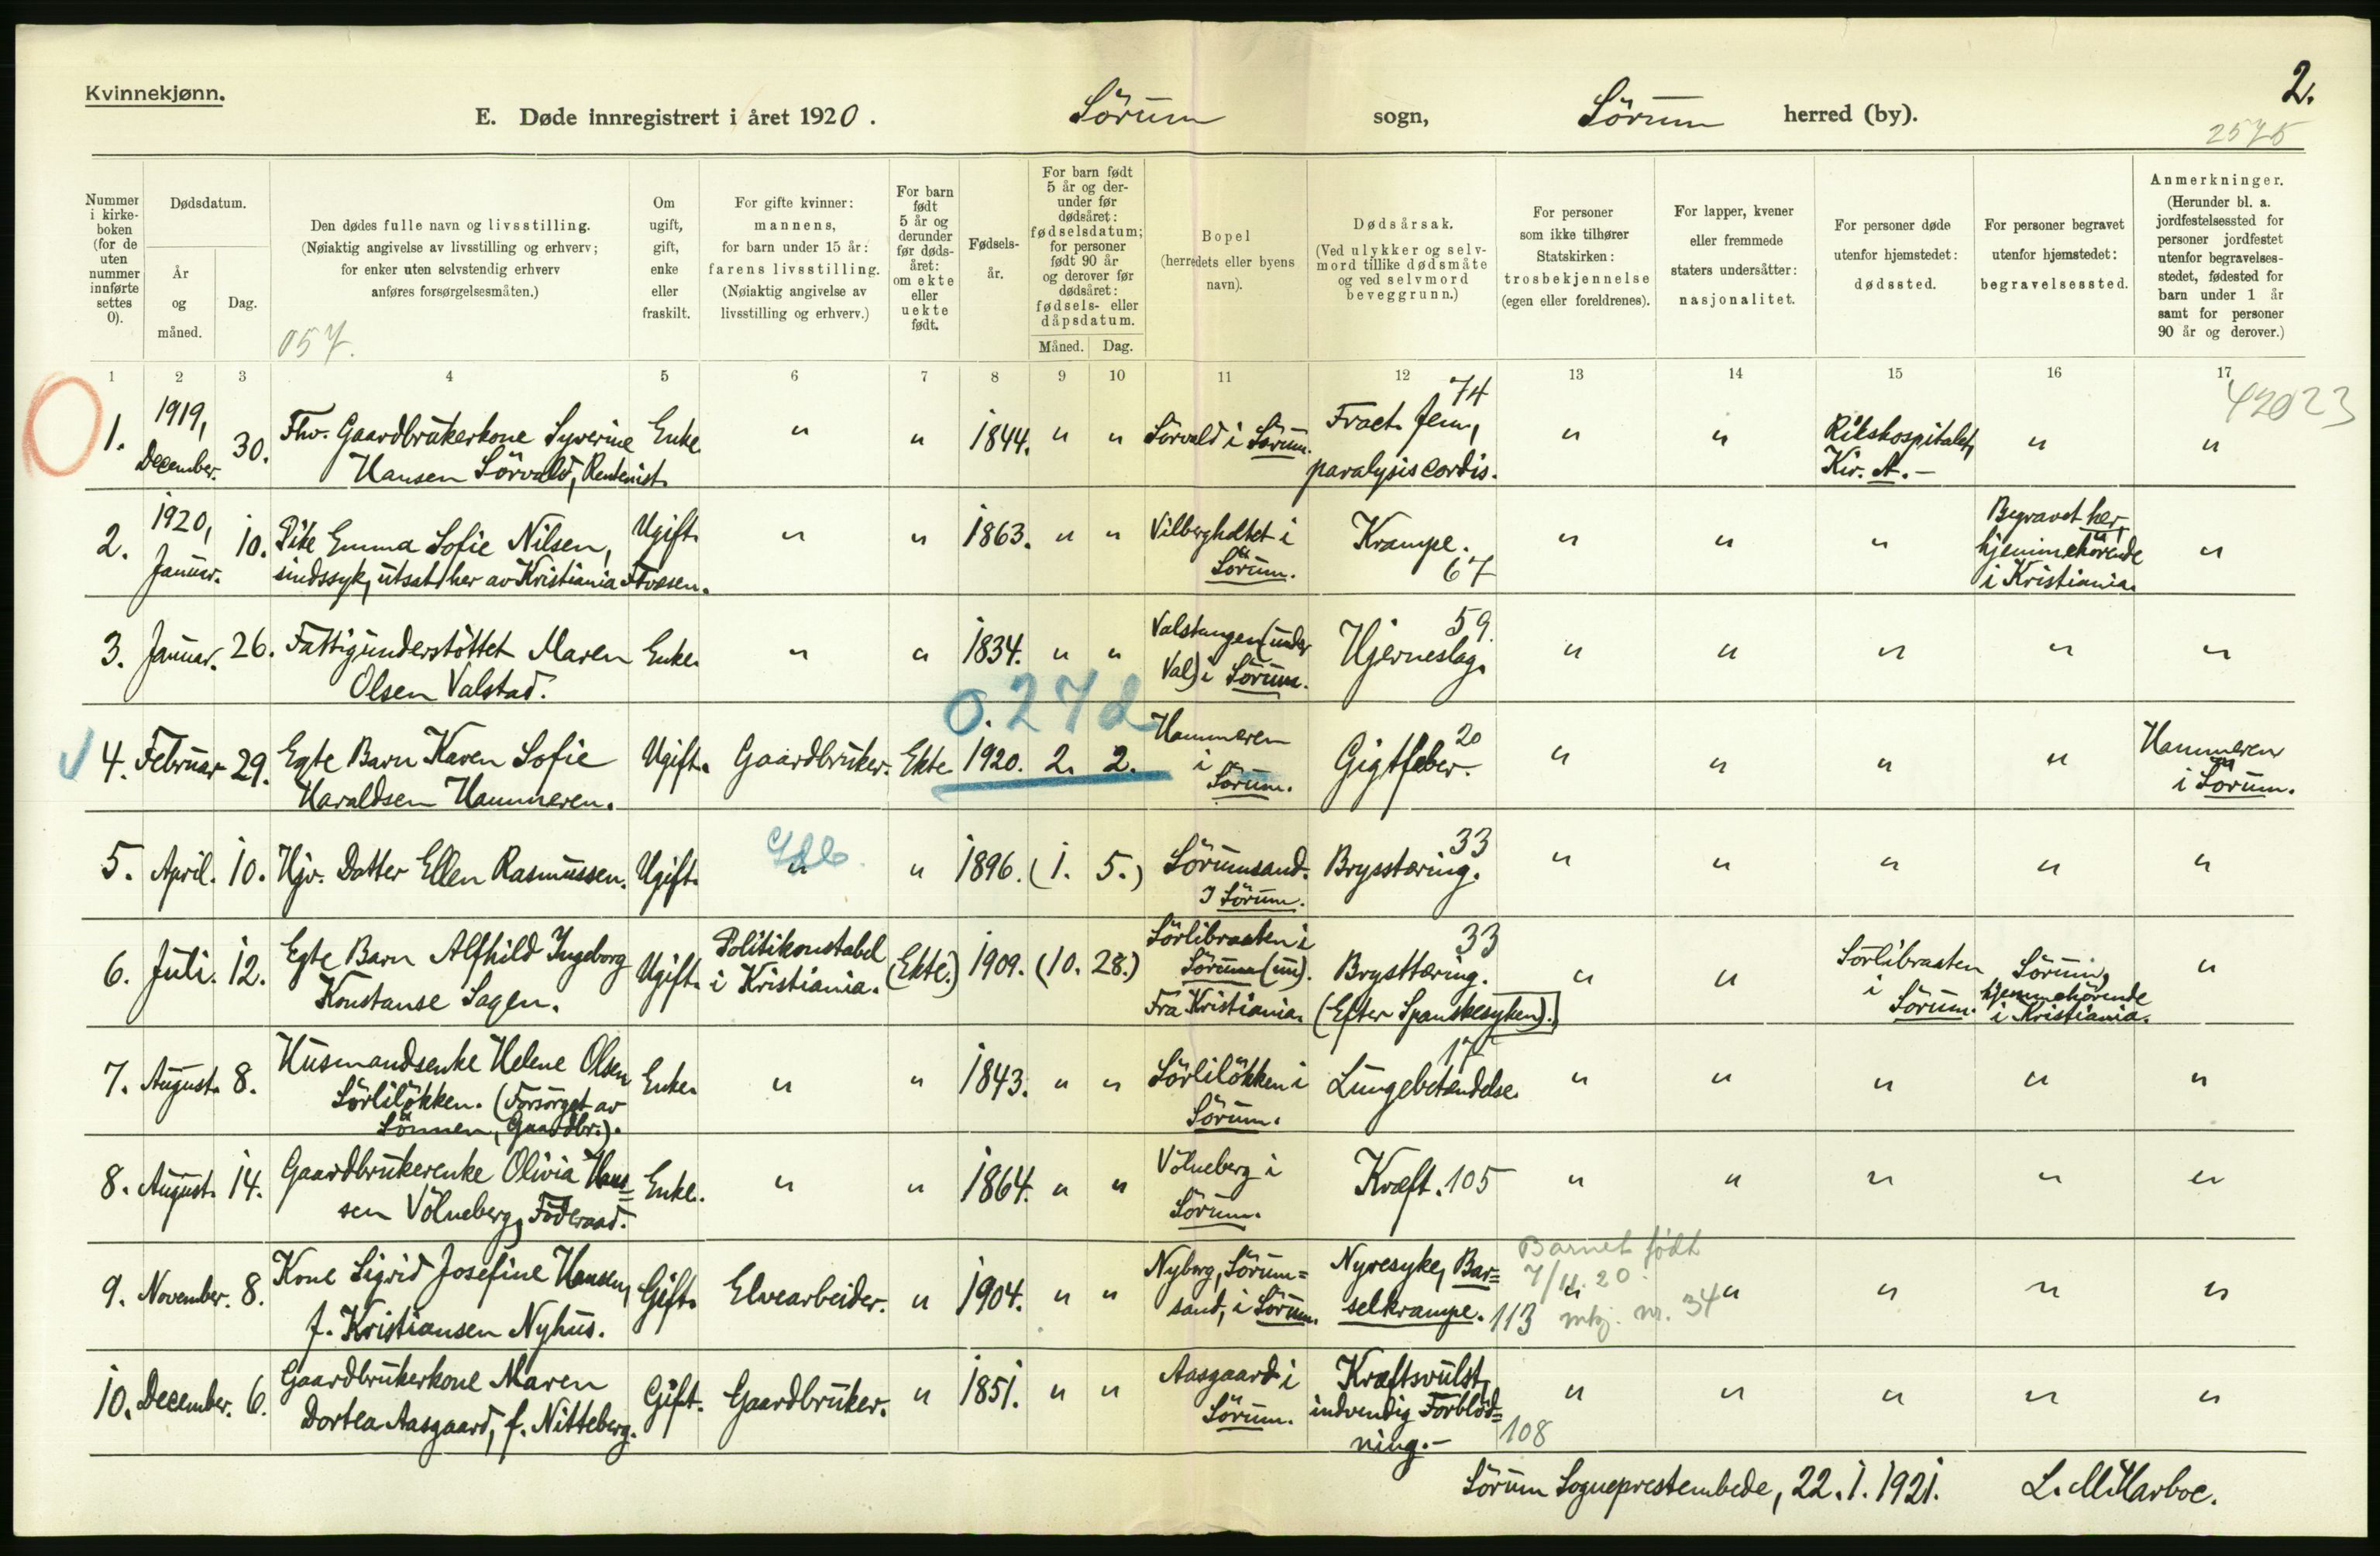 Kvinnekjønn.
2.
E. Døde innregistrert i året 1920. Sörum sogn, Sörum herred (by).
2575
Nummer i kirke-boken (for de uten nummer innførte settes 0).
Dødsdatum.
År og måned.
Dag.
Den dødes fulle navn og livsstilling.
(Nøiaktig angivelse av livsstilling og erhverv;
for enker uten selvstendig erhverv
anføres forsørgelsesmåten.)
057.
Om ugift, gift, enke eller fraskilt.
For gifte kvinner: mannens, for barn under 15 år: farens livsstilling. (Nøiaktig angivelse av livsstilling og erhverv.)
For barn født 5 år og derunder før døds-året: om ekte eller uekte født.
Fødsels-år.
For barn født 5 år og der-under før dødsåret: fødselsdatum; for personer født 90 år og derover før dødsåret: fødsels- eller dåpsdatum.
Måned. Dag.
Bopel (herredets eller byens navn).
Dødsårsak. (Ved ulykker og selv-mord tillike dødsmåte og ved selvmord beveggrunn.)
For personer som ikke tilhører Statskirken: trosbekjennelse (egen eller foreldrenes).
For lapper, kvener eller fremmede staters undersåtter: nasjonalitet.
For personer døde utenfor hjemstedet: dødssted.
For personer begravet utenfor hjemstedet: begravelsessted.
Anmerkninger. (Herunder bl. a. jordfestelsessted for personer jordfestet utenfor begravelses-stedet, fødested for barn under 1 år samt for personer 90 år og derover.)
1 2 3 4 5 6 7 8 9 10 11 12 13 14 15 16 17
42023
1. 1919, December. 30. Fhv. Gaardbrukerkone Syverine Hansen Sörvald, Rentenist. Enke " " 1844. " " Sörvald i Sörum. 74 Fract. fem., paralysis cordis. " " Rikshospitalet, Kir. A. – " "
2. 1920, Januar. 10. Pike Emma Sofie Nilsen, sindssyk, utsat her av Kristiania Fvæsen. Ugift. " " 1863. " " Vilbergholtet i Sörum. Krampe. 67 " " " Begravet her, hjemmehörende i Kristiania. "
3. Januar. 26. Fattigunderstöttet Maren Olsen Valstad. Enke. " " 1834. " " Valstangen (under Val) i Sörum. 59. Hjerneslag. " " " " "
0.27d
4. Februar 29. Egte Barn Karen Sofie Haraldsen Hammeren. Ugift. Gaardbruker. Ekte 1920. 2. 2. Hammeren i Sörum. 20 Gigtfeber. " " " " Hammeren i Sörum.
5. April. 10. Hjv. Datter Ellen Rasmussen. Ugift. " " 1896. (1. 5.) Sörumsand. I Sörum. 33 Brysstæring. " " " " "
6. Juli. 12. Egte Barn Alfhild Ingeborg Konstanse Sagen. Ugift. Politikonstabel i Kristiania. (Ekte.) 1909. (10. 28.) Sörlibraaten i Sörum (m). Fra Kristiania. 33 Brysttæring. (Efter Spanskesyken). " " Sörlibraaten i Sörum. Sörum, hjemmehörende i Kristiania. "
7. August. 8. Husmandsenke Helene Olsen Sörlilökken. (Forsörget av Sönnen, Gaardbr.). Enke. " " 1843. " " Sörlilökken i Sörum. 17 Lungebetændelse. " " " " "
8. August. 14. Gaardbrukerenke Olivia Han=sen Völneberg, Föderaad. Enke. " " 1864. " " Völneberg i Sörum. Kræft. 105 " " " " "
9. November. 8. Kone Sigrid Josefine Hansen, f. Kristiansen Nyhus. Gift. Elvearbeider. " 1904. " " Nyborg, Sörum=sand, i Sörum. Nyresyke, Bar=selkrampe. 113 Barnet født 7/11. 20. nr. 34 " " " " "
10. December. 6. Gaardbrukerkone Maren Dortea Aasgaard, f. Nitteberg. Gift. Gaardbruker. " 1851. " " Aasgaard i Sörum. Kræftsvulst, indvendig Forblöd=ning. – 108 " " " " "
Sörum Sogneprestembede, 22. 1. 1921. L. M. Harboe.